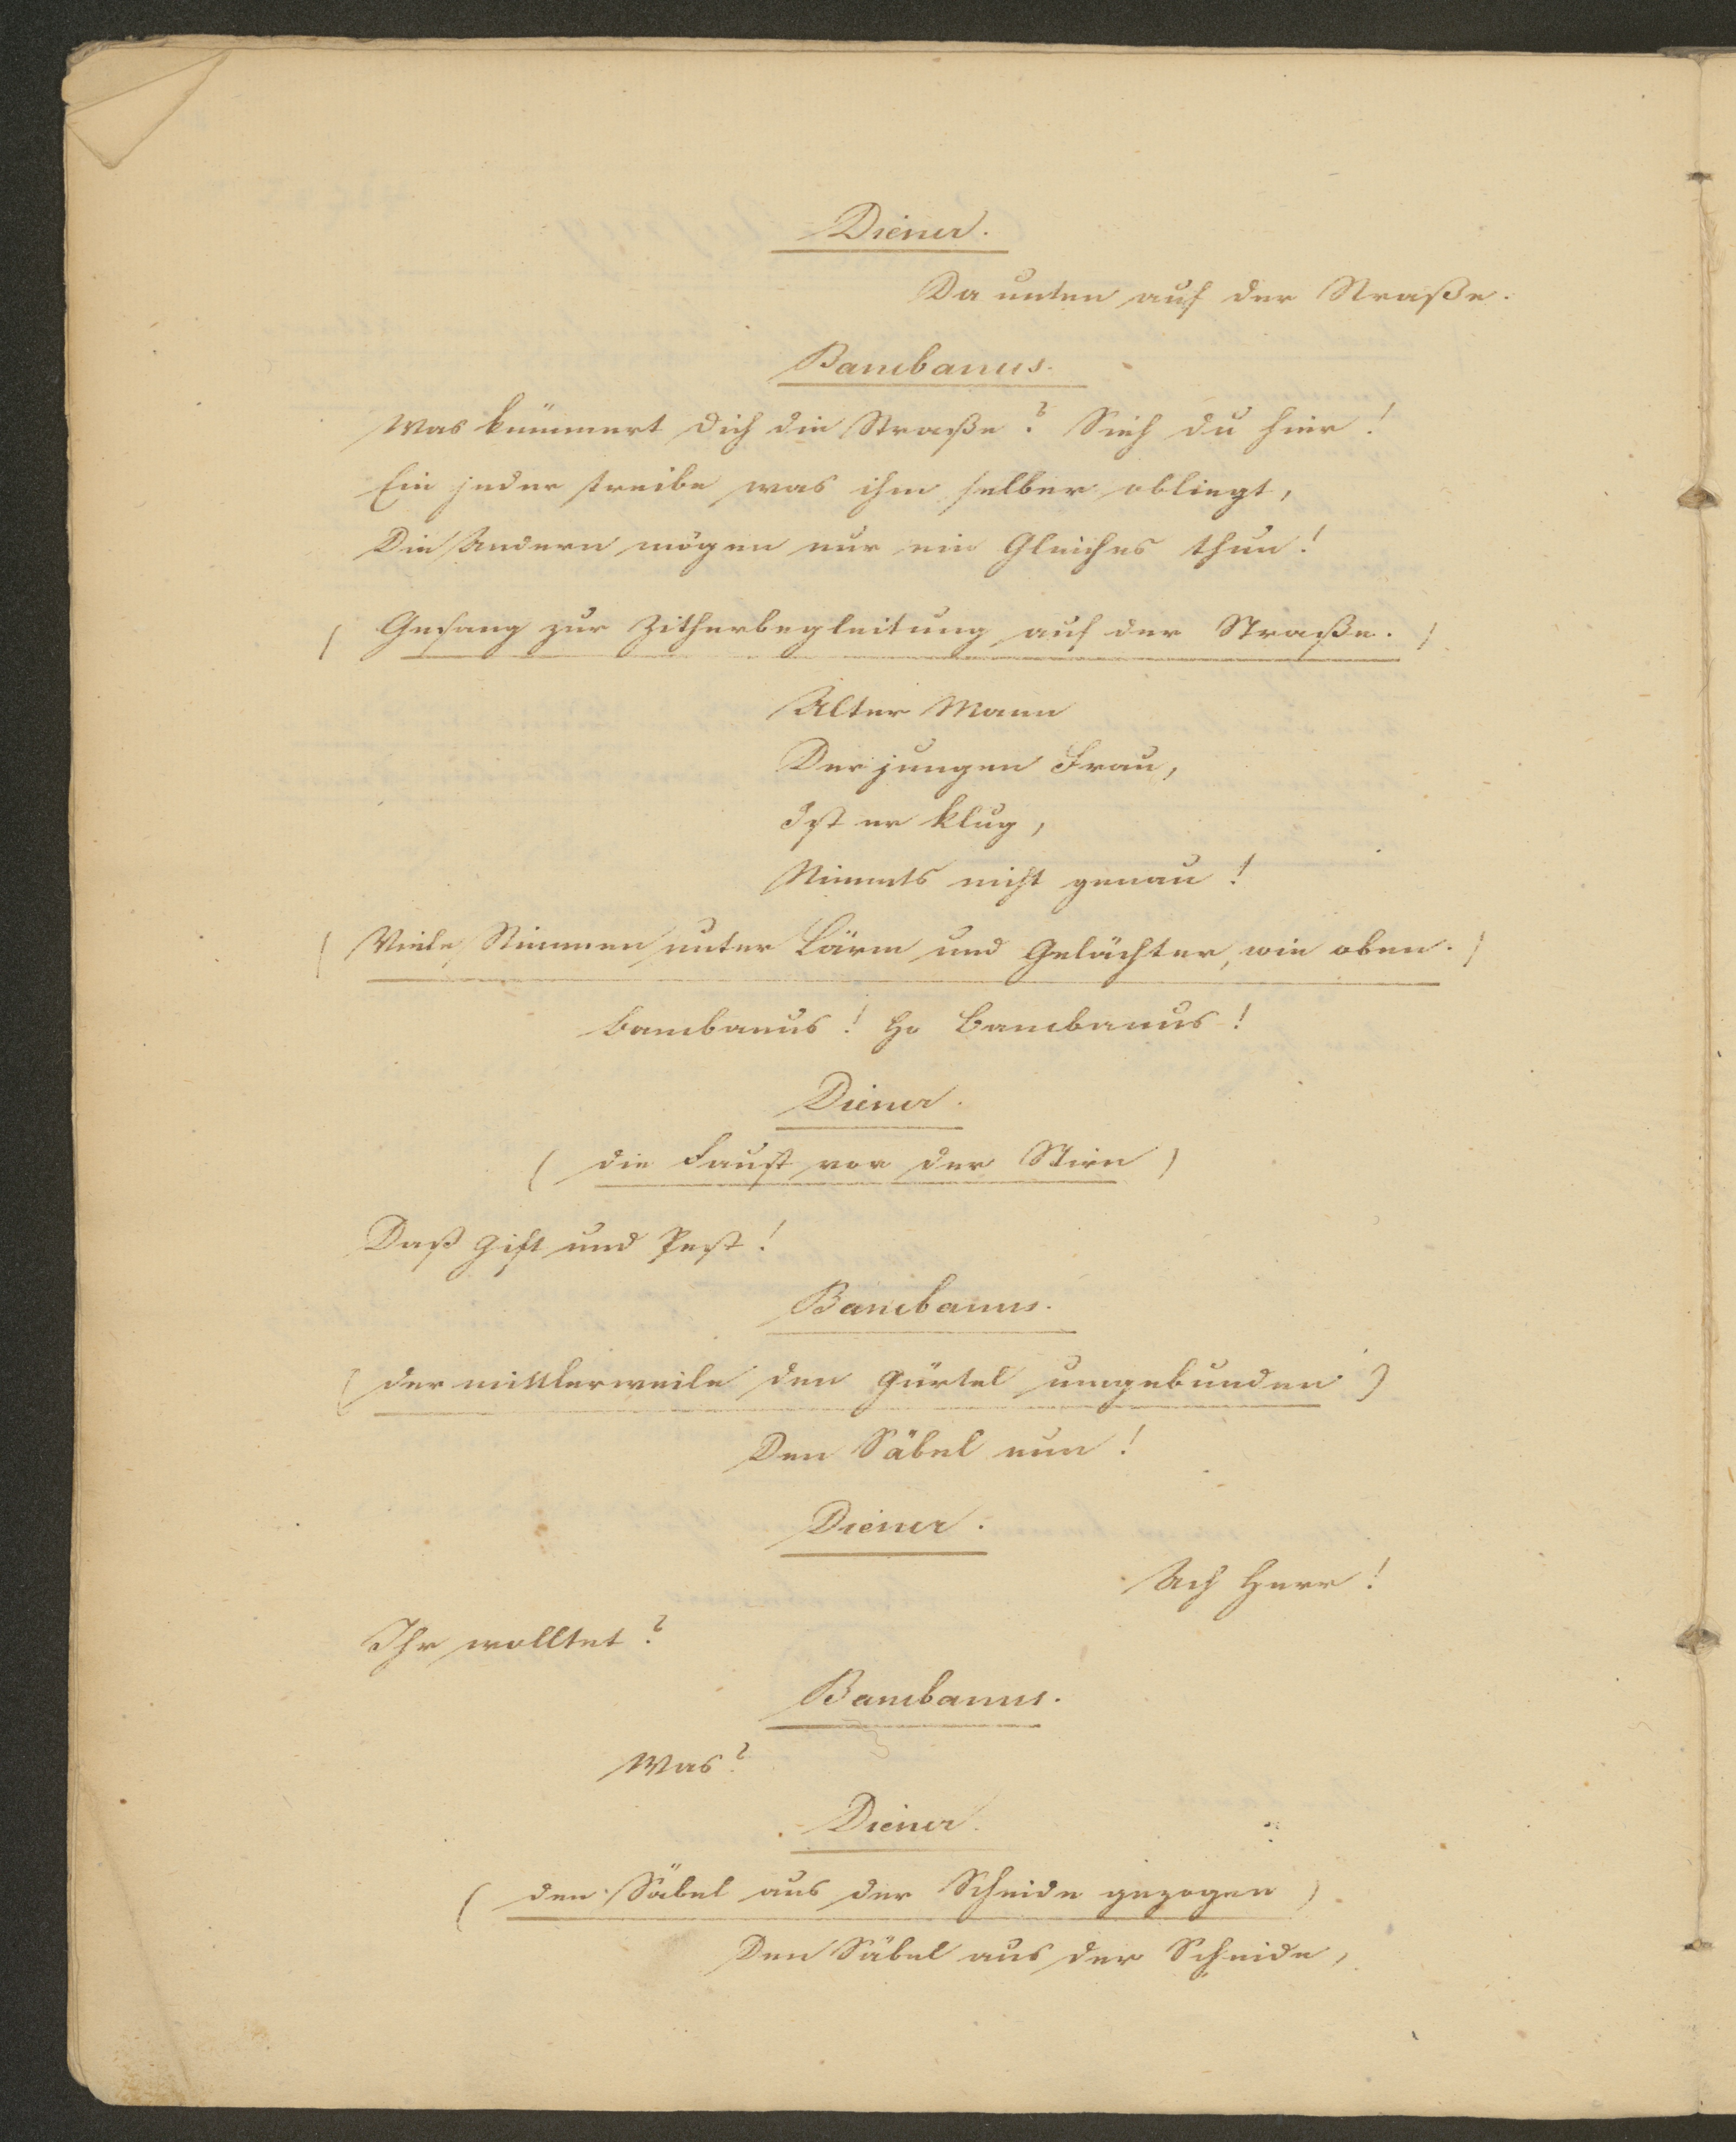 Diener.
Da unten auf der Straße.
Bancbanus.
Was kümmert dich die Straße? Sieh du hier!
Ein jeder treibe was ihm selber obliegt,
Die Andern mögen nur ein Gleiches thun!
( Gesang zur Zitherbegleitung auf der Straße. )
Alter Mann
Der jungen Frau,
Ist er klug,
Nimmts nicht genau!
( Viele Stimmen unter Lärm und Gelächter, wie oben. )
Bancbanus! Ho Bancbanus!
Diener.
( die Faust vor der Stirn )
Daß Gift und Pest!
Bancbanus.
( der mittlerweile den Gürtel umgebunden )
Den Säbel nun!
Diener.
Ach Herr!
Ihr wolltet?
Bancbanus.
Was?
Diener.
( den Säbel aus der Scheide gezogen )
Den Säbel aus der Scheide,